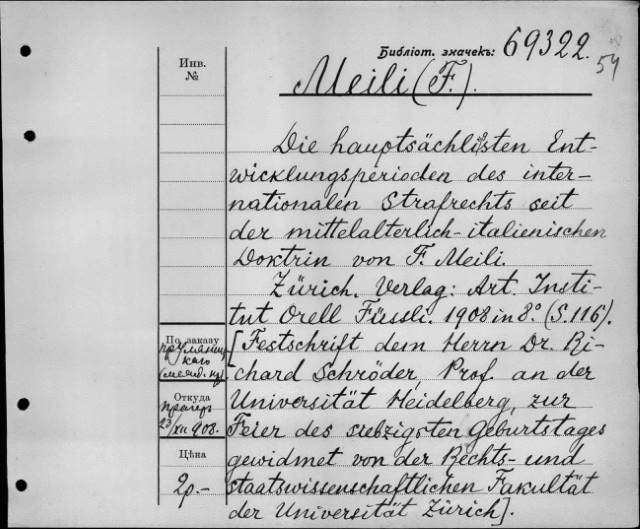 Библіот. значекъ: 69322.
54
Инв.
№
Meili (F.).
Die hauptsächlichsten Ent-
wicklungsperioden des inter-
nationalen Strafrechts seit
der mittelalterlich-italienischen
Doktrin von F. Meili.
Zürich. Verlag: Art. Insti-
tut Orell Füssli. 1908 in 8.° (S. 116).
[Festschrift dem Herrn Dr. Ri-
chard Schröder, Prof. an der
Universität Heidelberg, zur
Feier des siebzigsten Geburtstages
gewidmet von der Rechts- und
staatswissenschaftlichen Fakultät
der Universität Zürich].
По заказу
Откуда
23/XII 908.
Цѣна
2р.-